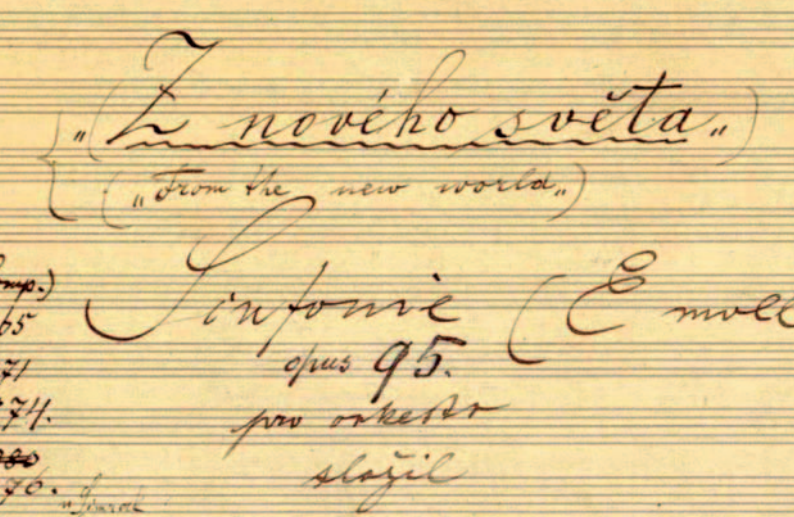 „(Z nového světa„)
(„From the new world„)
Sinfonie (E moll
opus 95.
pro orkestr
složil
omp.)
65
71
74.
76.
„Simrock